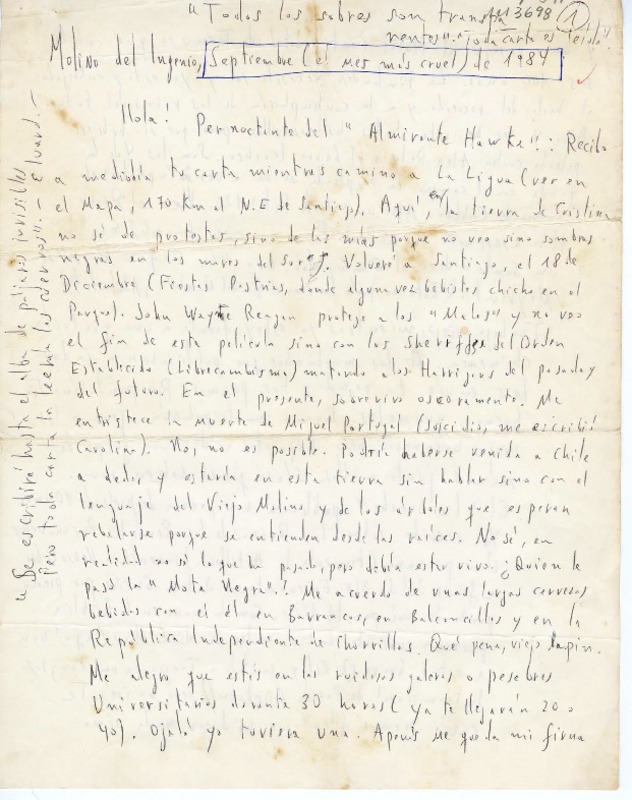 "Todos los sobres son transpa
rentes". "Toda carta es leída"
M 3698 1
Molino del Ingenio, Septiembre (el mes más cruel) de 1984
Hola! Pernoctante del "Almirante Hawke": Recibo
a mediodía tu carta mientras camino a La Ligua (ver en
el Mapa, 170 Km al N.E de Santiago). Aquí, en la tierra de Cristina
no sé de protestas, sino de las mías porque no veo sino sombras
negras en los muros del Volveré a Santiago, el 18 de
Diciembre (Fiestas Patrias, donde alguna vez bebistes chicha en el
Parque). John Wayne Reagan protege a los "Malos" y no veo
el fin de esta película sino con los Sheriffes del Orden
Establecido (Librecambismo) matando a los Harrigans del pasado y
del futuro. En el presente, sobrevivo oscuramente. Me
entristece la muerte de Miguel Portugal (suicidio, me escribió
Carolina). No, no es posible. Podría haberse venido a Chile
a dedo, y estaría en esta tierra sin hablar sino con el
lenguaje del Viejo Molino y de los árboles que esperan
rebelarse porque se entienden desde las raíces. No sé, en
realidad no sé lo que ha pasado, pero debía estar vivo. ¿Quien le
pasó la "Mota Negra"? Me acuerdo de unas largas cervezas
bebidas con el él en Barrancos, en Balconcillos y en la
República Independiente de Chorrillos. Qué pena, viejo lapin.
Me alegro que estés en las ruidosas galeras o pesebres
Universitarios durante 30 horas (ya te llegarán 20 o
40). Ojalá yo tuviera una. Apenis me queda mi firma
"Se escribirá hasta el alba de pájaros invisibles
Pero toda carta la leerán los cuervos".- Eluard.-